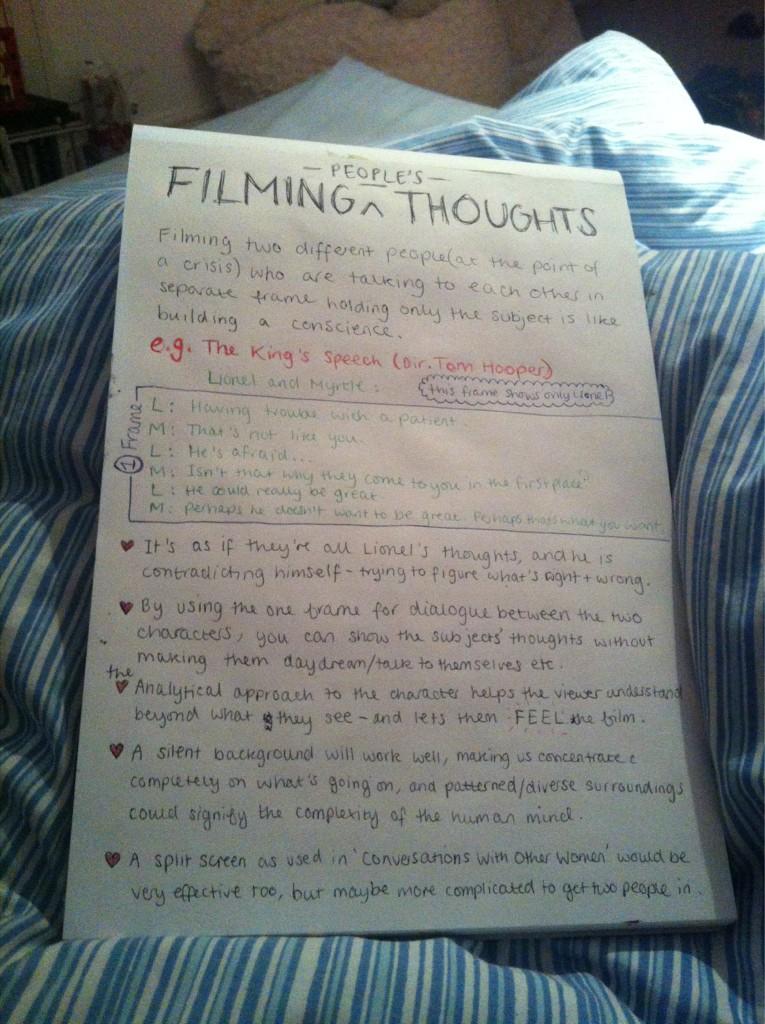 - PEOPLE'S -
FILMING ^ THOUGHTS
Filming two different people (at the point of
a crisis) who are talking to each other in
separate frame holding only the subject is like
building a conscience.
e.g. The King's Speech (Dir. Tom Hooper)
Lionel and Myrtle: (this frame shows only Lionel)
① Frame
L: Having trouble with a patient.
M: That's not like you.
L: He's afraid...
M: Isn't that why they come to you in the first place?
L: He could really be great
M: Perhaps he doesn't want to be great. Perhaps that's what you want.
♥ It's as if they're all Lionel's thoughts, and he is
contradicting himself - trying to figure what's right + wrong.
♥ By using the one frame for dialogue between the two
characters, you can show the subjects' thoughts without
making them daydream/talk to themselves etc.
the
♥ Analytical approach to the character helps the viewer understand
beyond what they see - and lets them FEEL the film.
♥ A silent background will work well, making us concentrate
completely on what's going on, and patterned/diverse surroundings
could signify the complexity of the human mind.
♥ A split screen as used in 'Conversations with Other Women' would be
very effective too, but maybe more complicated to get two people in.